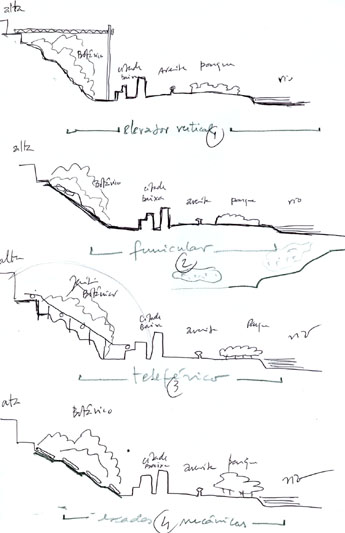 alta
Botânico
cidade baixa
avenida
parque
rio
elevador vertical 1
alta
Botânico
cidade baixa
avenida
parque
rio
funicular
2
alta
Jardim Botânico
cidade baixa
avenida
parque
rio
teleférico
3
alta
Botânico
cidade baixa
avenida
parque
rio
escadas 4 mecânicas